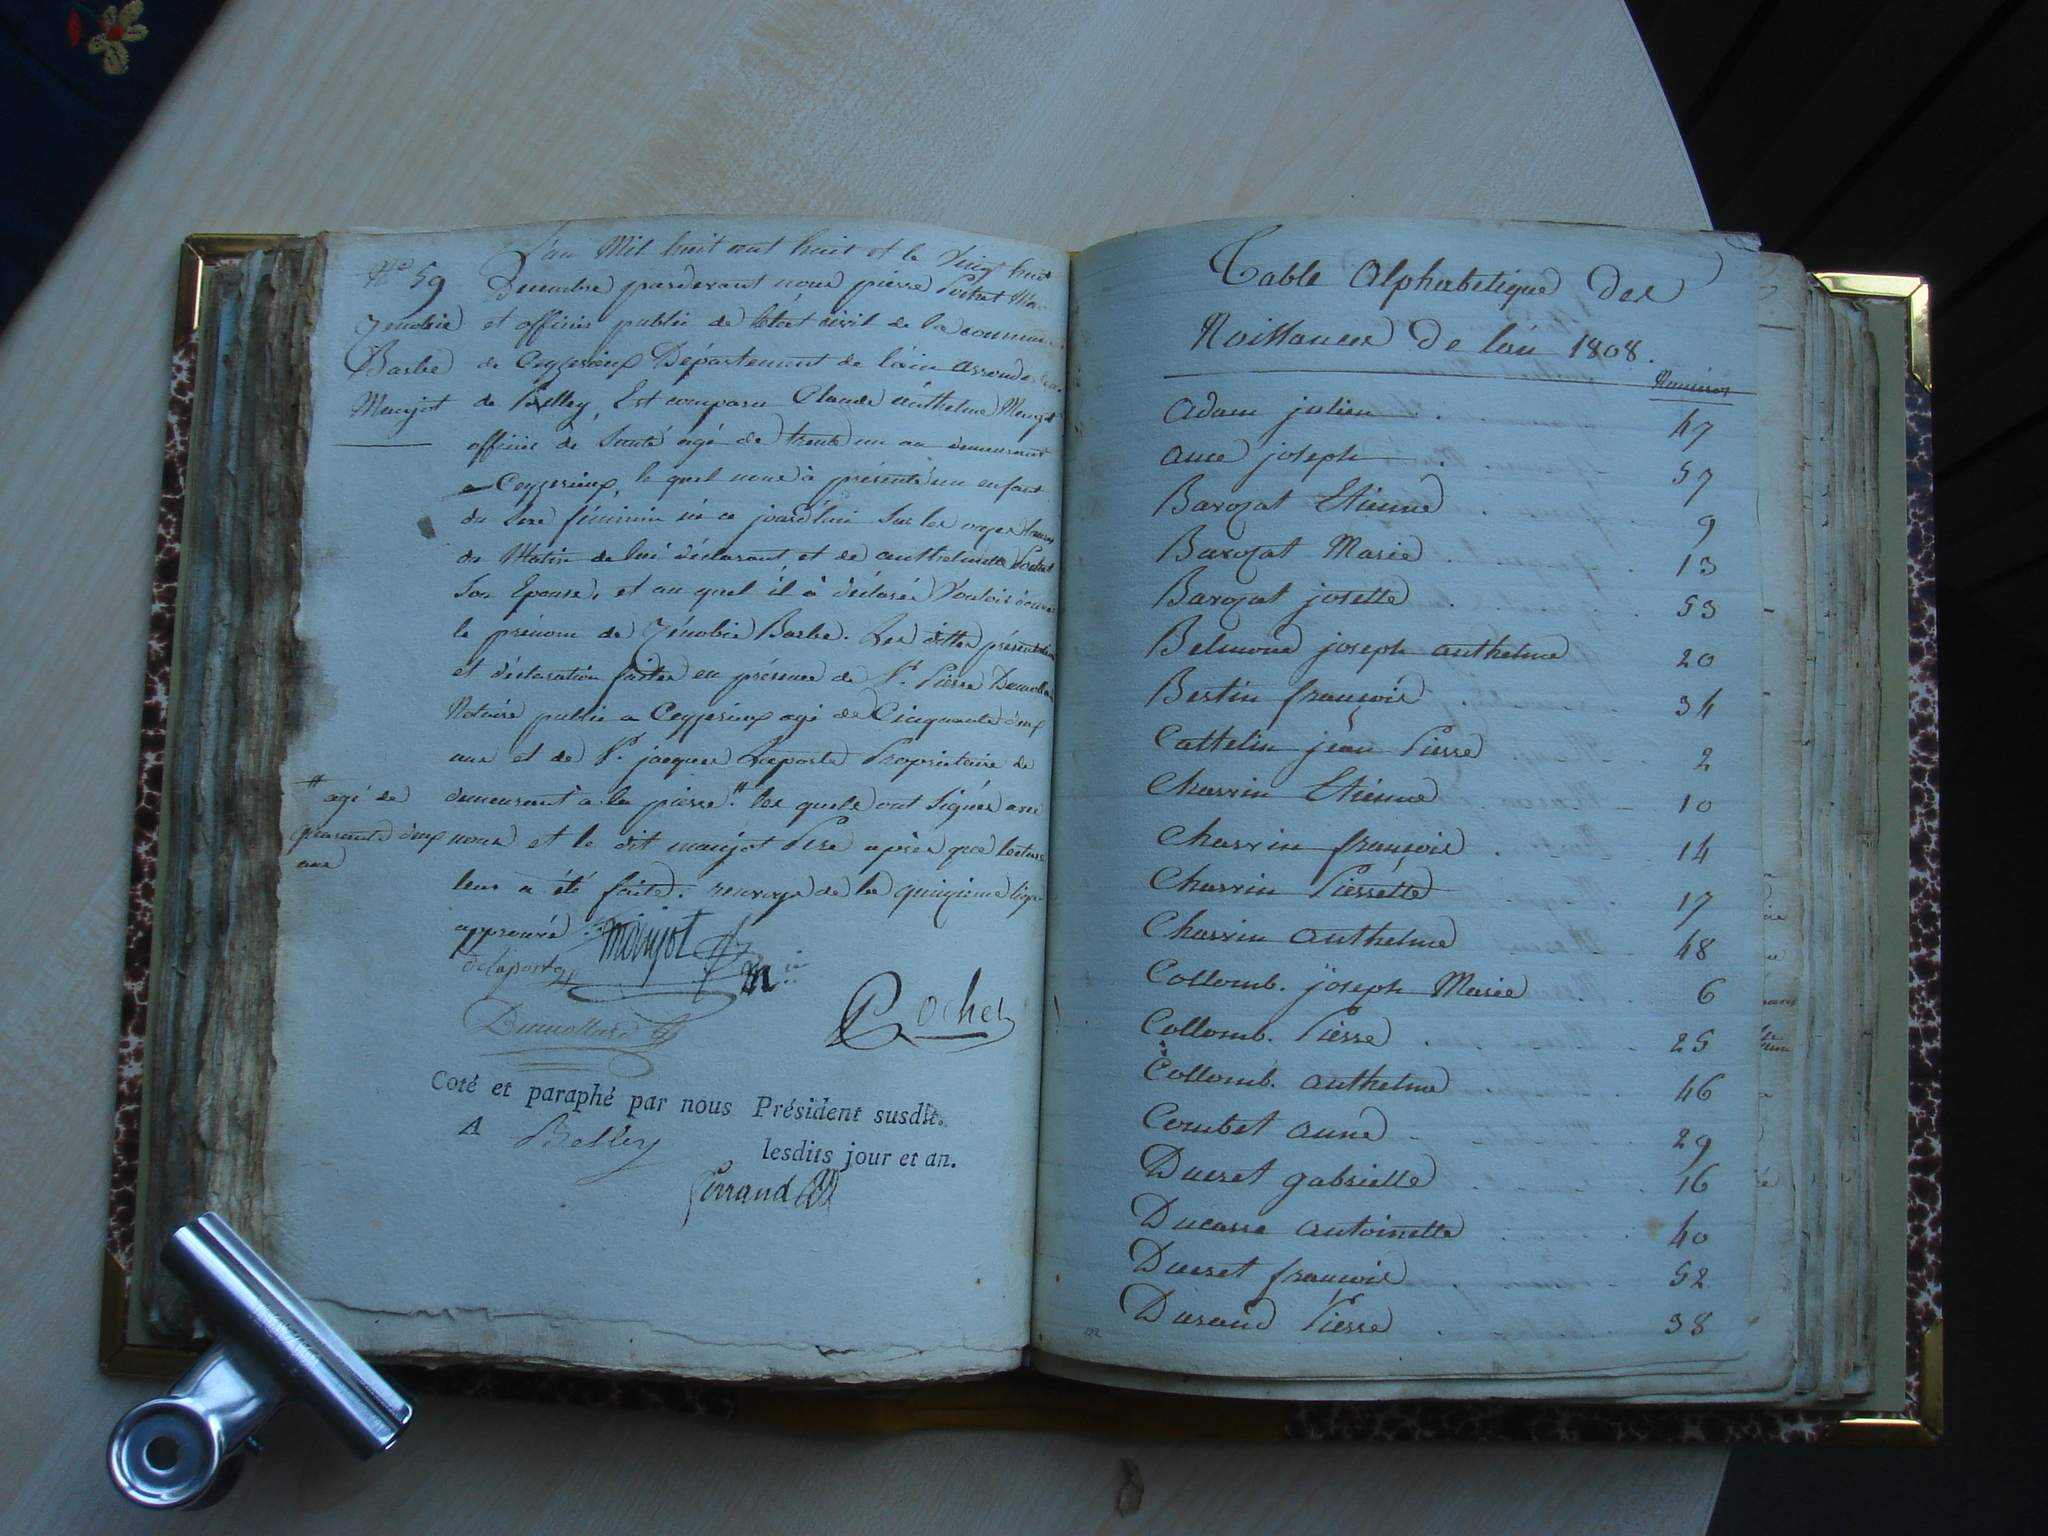 L'an Mil huit cent huit et le Vingt huit
N.° 59
Decembre pardevant nous pierre Pochet Mai
Zénobie
et officier public de l'état civil de la commune
Barbe
de Ceyzerieux Département de l'ain arrondis
Manjot
de Belley, Est comparu Claude anthelme Manjot
officier de santé agé de trente un an demeurant
a Ceyzerieux, le quel nous à présenté un enfant
du Sexe féminin né ce jourd'hui sur les onze heures
du Matin de lui déclarant et de anthelmette Pochet
Son Epouse, et au quel il à déclaré Vouloir donner
le prénom de Zénobie Barbe. Les dittes présentation
et déclaration faites en présence de S.r Pierre Dumollard
Notaire public a Ceyzerieux agé de Cinquante deux
ans et de S.r jacques Laporte Propriétaire de
# agé de
demeurant à la pierre.# les quels ont signés avec
quarante deux
nous et le dit manjot Pere après que lecture
ans
leur a été faite. renvoye de la quinzieme ligne
approuvé.
Manjot
delaporte
Dumollard
P Pochet
Coté et paraphé par nous Président susdit.
A Belley
lesdits jour et an.
Ferrand
Table Alphabetique des
Naissances De l'an 1808.
Numéros
Adam julien 47
Ame joseph 57
Barozat Etienne 9
Barozat Marie 13
Barozat josette 53
Belmond joseph anthelme 20
Bertin françois 34
Cattelin jean Pierre 2
Charvin Etienne 10
Charvin françois 14
Charvin Pierrette 17
Charvin anthelme 48
Collomb. joseph Marie 6
Collomb. Pierre 25
Collomb. anthelme 46
Combet anne 29
Ducret gabrielle 16
Ducarre antoinette 40
Ducret françois 52
Durand Pierre 38
192